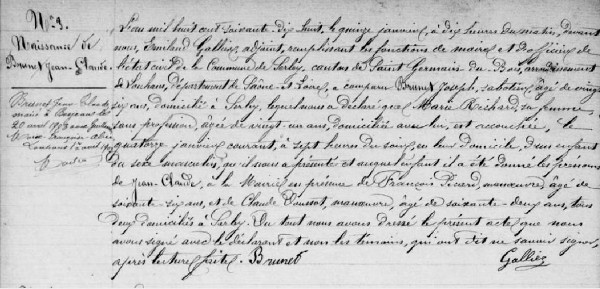 N° 3.
Naissance de
Brunet Jean Claude.
Brunet Jean Claude
marié à
20 avril
L'an mil huit cent soixante dix huit, le quinze janvier, à dix heures du matin, devant
nous, Galliez, adjoint, remplissant les fonctions de maire et d'officier de
l'état civil de la Commune de Serley, canton de Saint Germain du Bois, arrondissement
de Louhans, département de Saône et Loire, a comparu Brunet Joseph, sabotier, âgé de vingt
six ans, domicilié à Serley, lequel nous a déclaré que Marie Richard, sa femme,
sans profession, âgée de vingt un ans, domiciliée avec lui, est accouchée, le
quatorze janvier courant, à sept heures du soir, en leur domicile, d'un enfant
du sexe masculin, qu'il nous a présenté et auquel enfant il a été donné les prénoms
de Jean Claude, à la Mairie, en présence de François Picard, manœuvre, âgé de
soixante six ans, et de Claude Voussot, manœuvre, âgé de soixante deux ans, tous
deux domiciliés à Serley. Du tout nous avons dressé le présent acte que nous
avons signé avec le déclarant et non les témoins, qui ont dit ne savoir signer,
après lecture faite. Brunet
Galliez